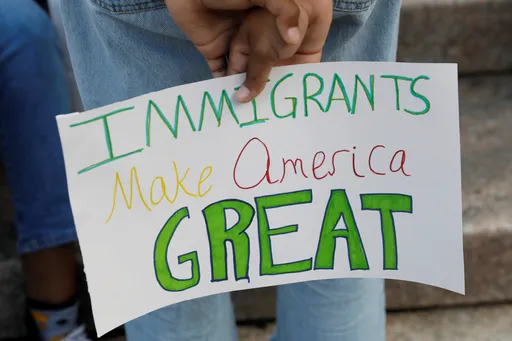 IMMIGRANTS
Make America
GREAT